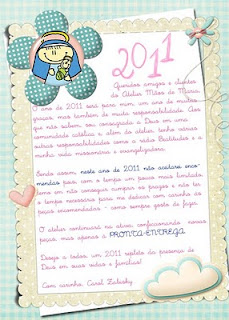 2011
Queridos amigos e clientes
do Atelier Mãos de Maria,
O ano de 2011 será para mim, um ano de muitas
graças, mas também de muita responsabilidade. Aos
que não sabem, sou consagrada a Deus em uma
comunidade católica e além do atelier, tenho várias
outras responsabilidades como a rádio Beatitudes e a
minha vida missionária e evangelizadora.
Sendo assim, neste ano de 2011 não aceitarei enco-
mendas pois com o tempo um pouco mais limitado
temo em não conseguir cumprir os prazos e não ter
o tempo necessário para me dedicar com carinho às
peças encomendadas - como sempre gosto de fazer.
O atelier continuará na ativa, confeccionando nossas
peças, mas apenas a PRONTA-ENTREGA.
Desejo a todos, um 2011 repleto da presença de
Deus em suas vidas e famílias!
Com carinho, Carol